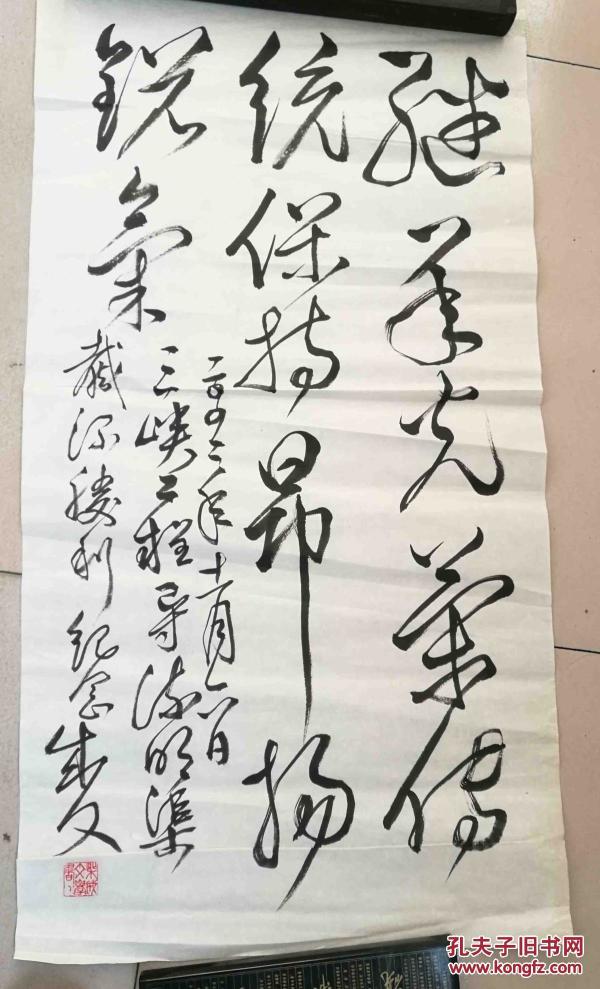 继承光荣传
统保持昂扬
锐氣
二00二年十一月六日
三峡工程导流明渠
截流胜利纪念 成文
孔夫子旧书网
www.kongfz.com